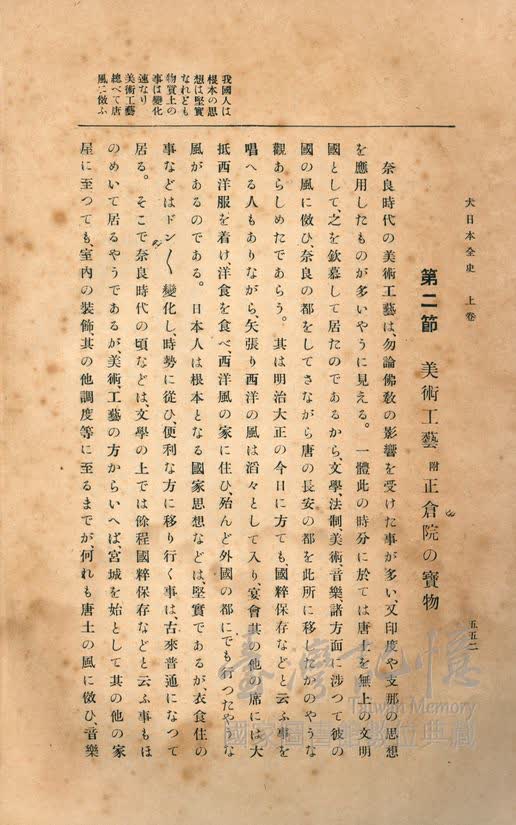 大日本全史　上卷
五五二
我國人は
根本の思
想は堅實
なれども
物質上の
事は變化
速なり
美術工藝
總べて唐
風に倣ふ
第二節　美術工藝 附 正倉院の寶物
奈良時代の美術工藝は、勿論佛敎の影響を受けた事が多い、又印度や支那の思想
を應用したものが多いやうに見える。一體此の時分に於ては唐土を無上の文明
國として、之を欽慕して居たのであるから、文學、法制、美術、音樂、諸方面に涉つて彼の
國の風に倣ひ、奈良の都をしてさながら唐の長安の都を此所に移したかのやうな
觀あらしめたであらう。其は明治大正の今日に方ても、國粹保存などと云ふ事を
唱へる人もありながら、矢張り西洋の風は滔々として入り、宴會其の他の席には大
抵西洋服を着け、洋食を食べ、西洋風の家に住ひ、殆んど外國の都にでも行つたやうな
風があるのである。日本人は根本となる國家思想などは、堅實であるが、衣食住の
事などはドン〱變化し、時勢に從ひ、便利な方に移り行く事は、古來普通になつて
居る。そこで奈良時代の頃などは、文學の上では餘程國粹保存などと云ふ事もほ
のめいて居るやうであるが、美術、工藝の方からいへば、宮城を始として其の他の家
屋に至つても、室內の裝飾、其の他調度等に至るまでが、何れも唐土の風に倣ひ、音樂
臺灣記憶
Taiwan Memory
國家圖書館數位典藏